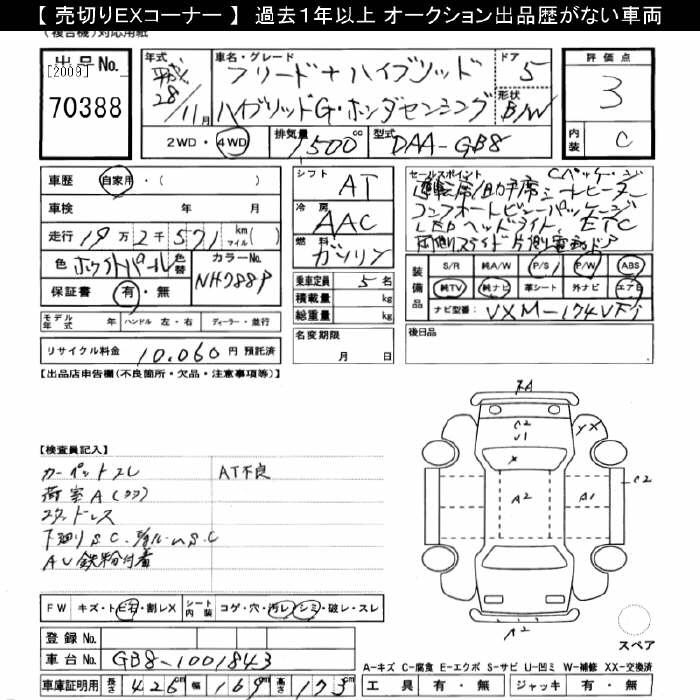 【 売切りEXコーナー 】 過去1年以上 オークション出品歴がない車両
(複合機)対応用紙
出品No.
[2009]
70388
年式 平成 28年 11月
車名・グレード
フリード+ハイブリッド
ハイブリッドG・ホンダセンシング
ドア 5
形状 B/W
評価点 3
内装 C
2WD・4WD
排気量 1500cc
型式 DAA-GB8
車歴 自家用・( )
車検 年 月
走行 19万2千571 km マイル( )
色 ホワイトパール 色替
カラーNo. NH788P
保証書 有・無
シフト AT
冷房 AAC
燃料 ガソリン
乗車定員 5名
積載量 kg
総重量 kg
セールスポイント Cパッケージ
運転席/助手席シートヒーター
コンフォートビューパッケージ
LEDヘッドライト、ETC
両側スライド片側電動ドア
装備品
S/R 純A/W P/S P/W ABS
純TV 純ナビ 革シート 外ナビ エアB
ナビ型番: VXM-174VFi
モデル年式 年 ハンドル 左・右 ディーラー・並行
名変期限 月 日
後日品
リサイクル料金 10,060 円 預託済
【出品店申告欄(不良箇所・欠品・注意事項等)】
【検査員記入】
カーペットスレ
AT不良
荷室A(カワ)
スタッドレス
下廻りSC、
AU鉄粉付着
XA
C2
V1
YX
X
A2
A1
C2
A2
FW キズ・ト・ヒ石・割レX
シート内装 コゲ・穴・汚レ・シミ・破レ・スレ
登録No.
車台No. GB8-1001843
車庫証明用 長さ 426cm 幅 169cm 高さ 173cm
スペア
A-キズ C-腐食 E-エクボ S-サビ U-凹ミ W-補修 XX-交換済
工具 有・無 ジャッキ 有・無